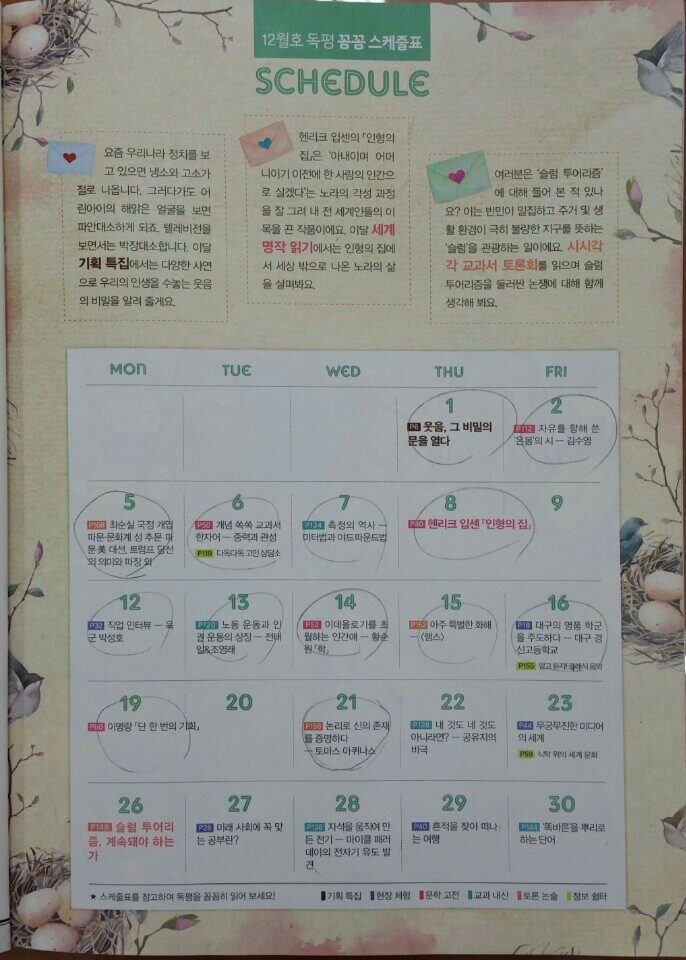 12월호 독평 꼼꼼 스케줄표
SCHEDULE
요즘 우리나라 정치를 보
고 있으면 냉소와 고소가
절로 나옵니다. 그러다가도 어
린아이의 해맑은 얼굴을 보면
파안대소하게 되죠. 텔레비전을
보면서는 박장대소합니다. 이달
기획 특집에서는 다양한 사연
으로 우리의 인생을 수놓는 웃음
의 비밀을 알려 줄게요.
헨리크 입센의 『인형의
집』은 '아내이며 어머
니이기 이전에 한 사람의 인간으
로 살겠다'는 노라의 각성 과정
을 잘 그려 내 전 세계인들의 이
목을 끈 작품이에요. 이달 세계
명작 읽기에서는 인형의 집에
서 세상 밖으로 나온 노라의 삶
을 살펴봐요.
여러분은 '슬럼 투어리즘'
에 대해 들어 본 적 있나
요? 이는 빈민이 밀집하고 주거 및 생
활 환경이 극히 불량한 지구를 뜻하는
'슬럼'을 관광하는 일이에요. 시시각
각 교과서 토론회를 읽으며 슬럼
투어리즘을 둘러싼 논쟁에 대해 함께
생각해 봐요.
MON TUE WED THU FRI
1
P6 웃음, 그 비밀의
문을 열다
2
P112 자유를 향해 쓴
'온몸'의 시 — 김수영
5
P168 최순실 국정 개입
파문·문화계 성 추문 파
문·美 대선, 트럼프 당선
의 의미와 파장 외
6
P50 개념 쏙쏙 교과서
한자어 — 중력과 관성
P119 다독다독 고민 상담소
7
P134 측정의 역사 —
미터법과 야드파운드법
8
P20 헨리크 입센 『인형의 집』
9
12
P32 직업 인터뷰 — 육
군 박성호
13
P120 노동 운동과 인
권 운동의 상징 — 전태
일&조영래
14
P52 이데올로기를 초
월하는 인간애 — 황순
원 「학」
15
P162 아주 특별한 화해
— 〈램스〉
16
P18 대구의 명품 학군
을 주도하다 — 대구 경
신고등학교
P155 알고 듣자! 클래식 음악
19
P60 이명랑 『단 한 번의 기회』
20
21
P156 논리로 신의 존재
를 증명하다
— 토마스 아퀴나스
22
P128 내 것도 네 것도
아니라면? — 공유지의
비극
23
P44 무궁무진한 미디어
의 세계
P59 식탁 위의 세계 문화
26
P148 슬럼 투어리
즘, 계속돼야 하는
가
27
P28 미래 사회에 꼭 맞
는 공부란?
28
P138 자석을 움직여 만
든 전기 — 마이클 패러
데이의 전자기 유도 발
견
29
P40 흔적을 찾아 떠나
는 여행
30
P144 '똑바른'을 뿌리로
하는 단어
★ 스케줄표를 참고하여 독평을 꼼꼼히 읽어 보세요! 기획 특집 현장 체험 문학 고전 교과 내신 토론 논술 정보 쉼터